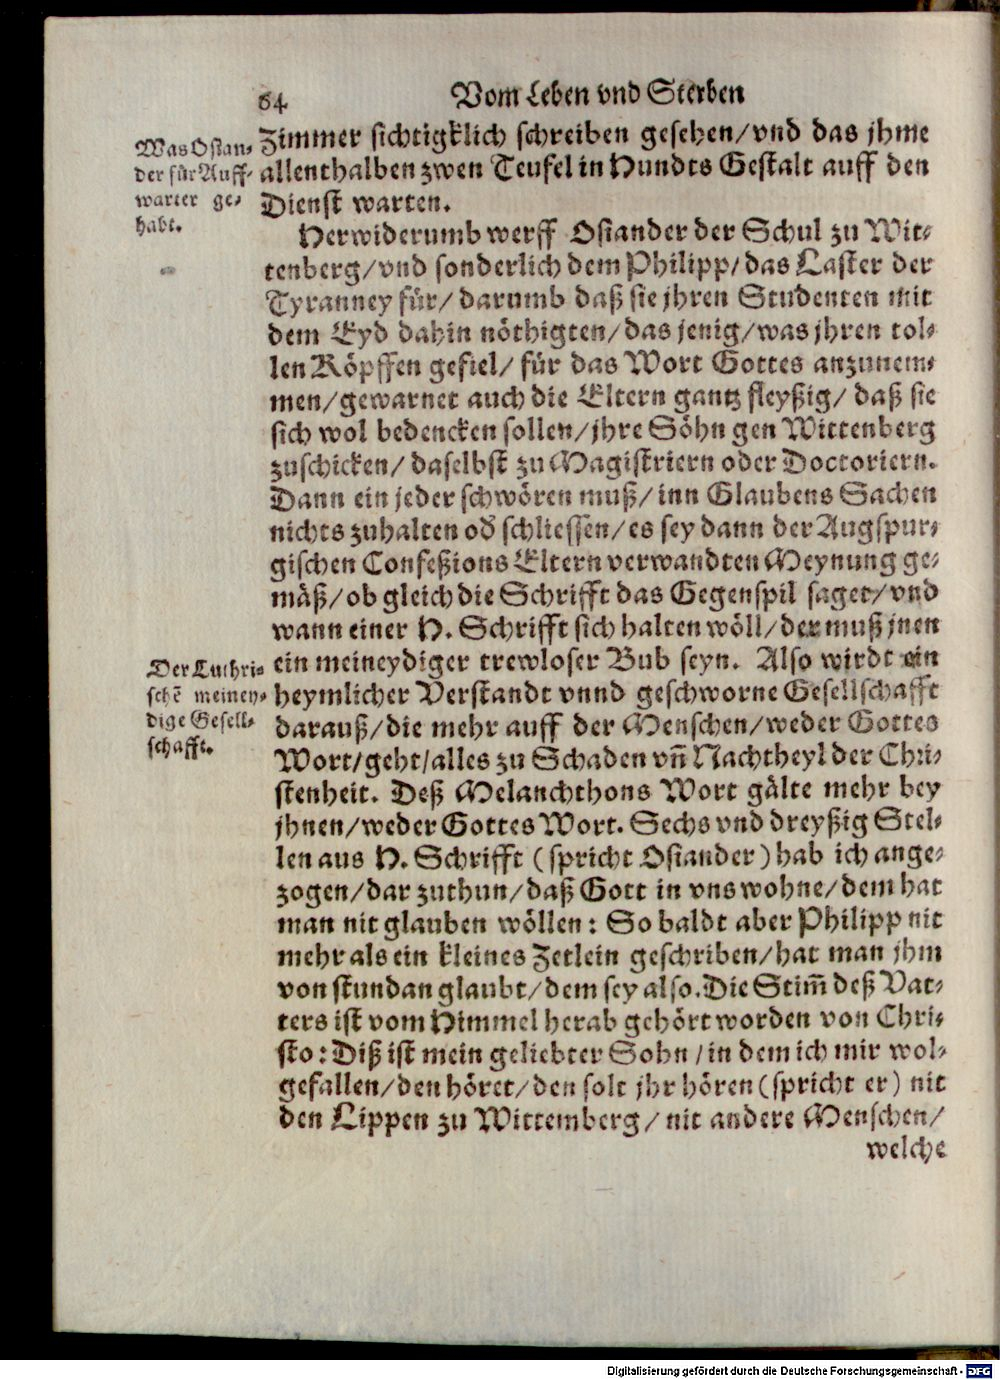 64 Vom Leben vnd Sterben
Was Osian⸗
der für Auff⸗
warter ge⸗
habt.
Zimmer sichtigklich schreiben gesehen/vnd das jhme
allenthalben zwen Teufel in Hundts Gestalt auff den
Dienst warten.
Herwiderumb werff Osiander der Schul zu Wit⸗
tenberg/vnd sonderlich dem Philipp/das Laster der
Tyranney für/darumb daß sie jhren Studenten mit
dem Eyd dahin nöthigten/das jenig/was jhren tol⸗
len Köpffen gefiel/für das Wort Gottes anzunem⸗
men/gewarnet auch die Eltern gantz fleyßig/daß sie
sich wol bedencken sollen/jhre Söhn gen Wittenberg
zuschicken/daselbst zu Magistriern oder Doctoriern.
Dann ein jeder schwören muß/inn Glaubens Sachen
nichts zuhalten od̃ schliessen/es sey dann der Augspur⸗
gischen Confeßions Eltern verwandten Meynung ge⸗
mäß/ob gleich die Schrifft das Gegenspil saget/vnd
wann einer H. Schrifft sich halten wöll/der muß jnen
ein meineydiger trewloser Bub seyn. Also wirdt ein
Der Luthri⸗
schẽ meiney⸗
dige Gesell⸗
schafft.
heymlicher Verstandt vnnd geschworne Gesellschafft
darauß/die mehr auff der Menschen/weder Gottes
Wort/geht/alles zu Schaden vñ Nachtheyl der Chri⸗
stenheit. Deß Melanchthons Wort gälte mehr bey
jhnen/weder Gottes Wort. Sechs vnd dreyßig Stel⸗
len aus H. Schrifft (spricht Osiander) hab ich ange⸗
zogen/dar zuthun/daß Gott in vns wohne/dem hat
man nit glauben wöllen: So baldt aber Philipp nit
mehr als ein kleines Zetlein geschriben/hat man jhm
von stundan glaubt/dem sey also. Die Stim̃ deß Vat⸗
ters ist vom Himmel herab gehört worden von Chri⸗
sto: Diß ist mein geliebter Sohn/in dem ich mir wol⸗
gefallen/den höret/den solt jhr hören (spricht er) nit
den Lippen zu Wittemberg/nit andere Menschen/
welche
Digitalisierung gefördert durch die Deutsche Forschungsgemeinschaft - DFG